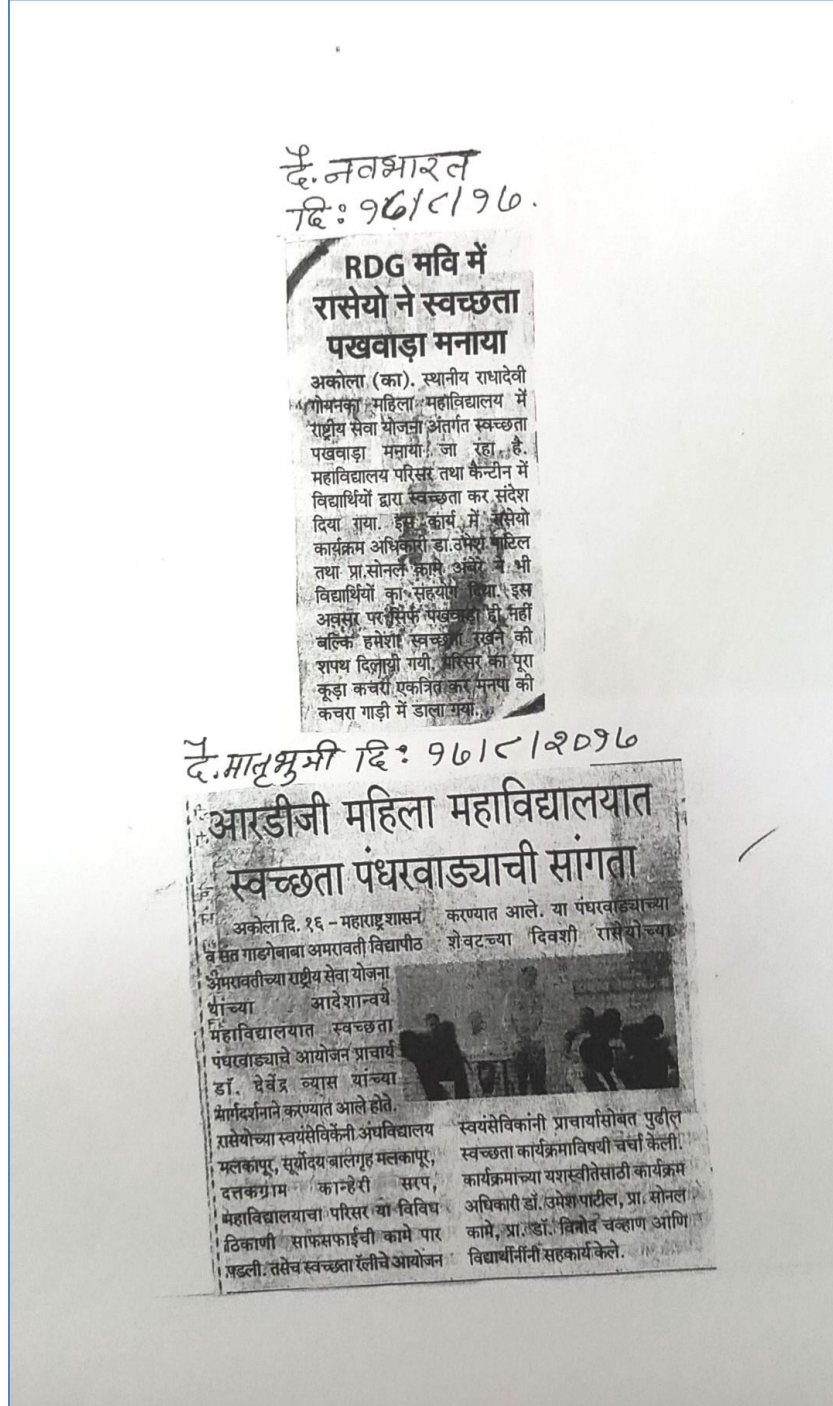 दै. नवभारत
दि: १७/८/१७.
RDG मवि में
रासेयो ने स्वच्छता
पखवाड़ा मनाया
अकोला (का). स्थानीय राधादेवी
गोयनका महिला महाविद्यालय में
राष्ट्रीय सेवा योजना अंतर्गत स्वच्छता
पखवाड़ा मनाया जा रहा है.
महाविद्यालय परिसर तथा कैन्टीन में
विद्यार्थियों द्वारा स्वच्छता कर संदेश
दिया गया. इस कार्य में रासेयो
कार्यक्रम अधिकारी डा.उमेश पाटिल
तथा प्रा.सोनल कामे अंबेरे ने भी
विद्यार्थियों का सहयोग दिया. इस
अवसर पर सिर्फ पखवाड़ा ही नहीं
बल्कि हमेशा स्वच्छता रखने की
शपथ दिलायी गयी. परिसर का पूरा
कूड़ा कचरा एकत्रित कर मनपा की
कचरा गाड़ी में डाला गया.
दै. मातृभुमी दि: १७/८/२०१७
आरडीजी महिला महाविद्यालयात
स्वच्छता पंधरवाड्याची सांगता
अकोला दि. १६ – महाराष्ट्र शासन
व संत गाडगेबाबा अमरावती विद्यापीठ
अमरावतीच्या राष्ट्रीय सेवा योजना
यांच्या आदेशान्वये
महाविद्यालयात स्वच्छता
पंघरवाड्याचे आयोजन प्राचार्य
डॉ. देवेंद्र व्यास यांच्या
मार्गदर्शनाने करण्यात आले होते.
रासेयोच्या स्वयंसेविकेंनी अंघविद्यालय
मलकापूर, सूर्योदय बालगृह मलकापूर,
दत्तकग्राम कान्हेरी सरप,
महाविद्यालयाचा परिसर या विविध
ठिकाणी साफसफाईची कामे पार
पडली. तसेच स्वच्छता रॅलीचे आयोजन
करण्यात आले. या पंघरवाड्याच्या
शेवटच्या दिवशी रासेयोच्या
स्वयंसेविकांनी प्राचार्यासोबत पुढील
स्वच्छता कार्यक्रमाविषयी चर्चा केली.
कार्यक्रमाच्या यशस्वीतेसाठी कार्यक्रम
अधिकारी डॉ. उमेश पाटील, प्रा. सोनल
कामे, प्रा. डॉ. विनोद चव्हाण आणि
विद्यार्थीनींनी सहकार्य केले.